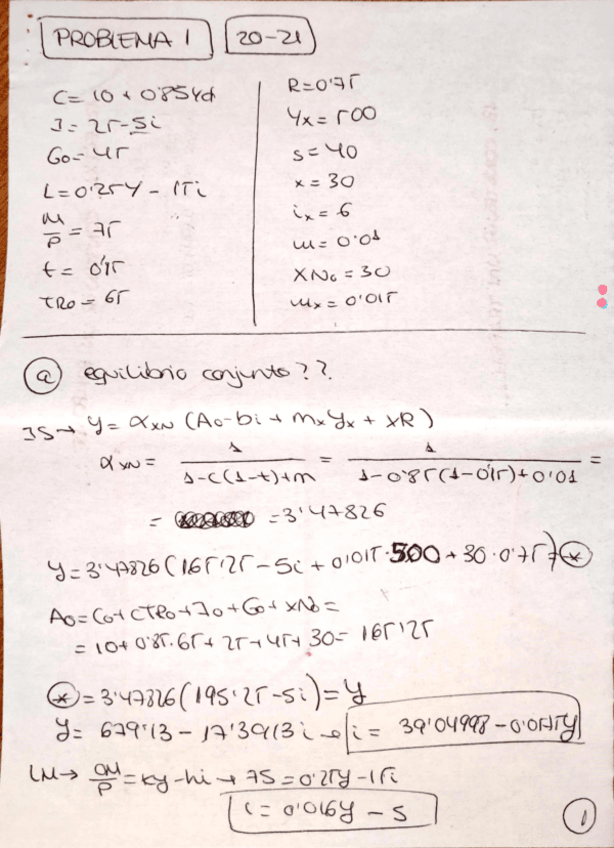 PROBLEMA 1 20-21
C = 10 + 0'85Yd
I = 25-5i
G0 = 45
L = 0'25Y - 15i
M/P = 75
t = 0'15
TR0 = 65
R = 0'75
Yx = 500
s = 40
x = 30
ix = 6
m = 0'01
XN0 = 30
mx = 0'015
ⓐ equilibrio conjunto??
IS → Y = αXN (A0 - bi + mxYx + XR)
αXN = 1/(1-c(1-t)+m) = 1/(1-0'85(1-0'15)+0'01) =
= 3'47826
Y = 3'47826 (165'25 - 5i + 0'015·500 + 30·0'75) = *
A0 = C0 + cTR0 + I0 + G0 + XN0 =
= 10 + 0'85·65 + 25 + 45 + 30 = 165'25
* = 3'47826 (195'25 - 5i) = Y
Y = 679'13 - 17'3913i → i = 39'04998 - 0'0575Y
LM → M/P = ky - hi → 75 = 0'25y - 15i
i = 0'016y - 5
1